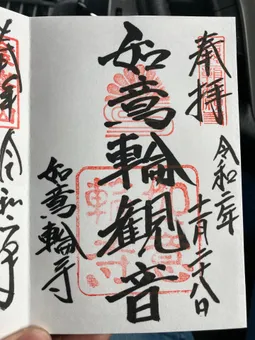 奉拝
令和二年
十一月二十八日
如意輪観音
如意輪寺
奉拝 令和